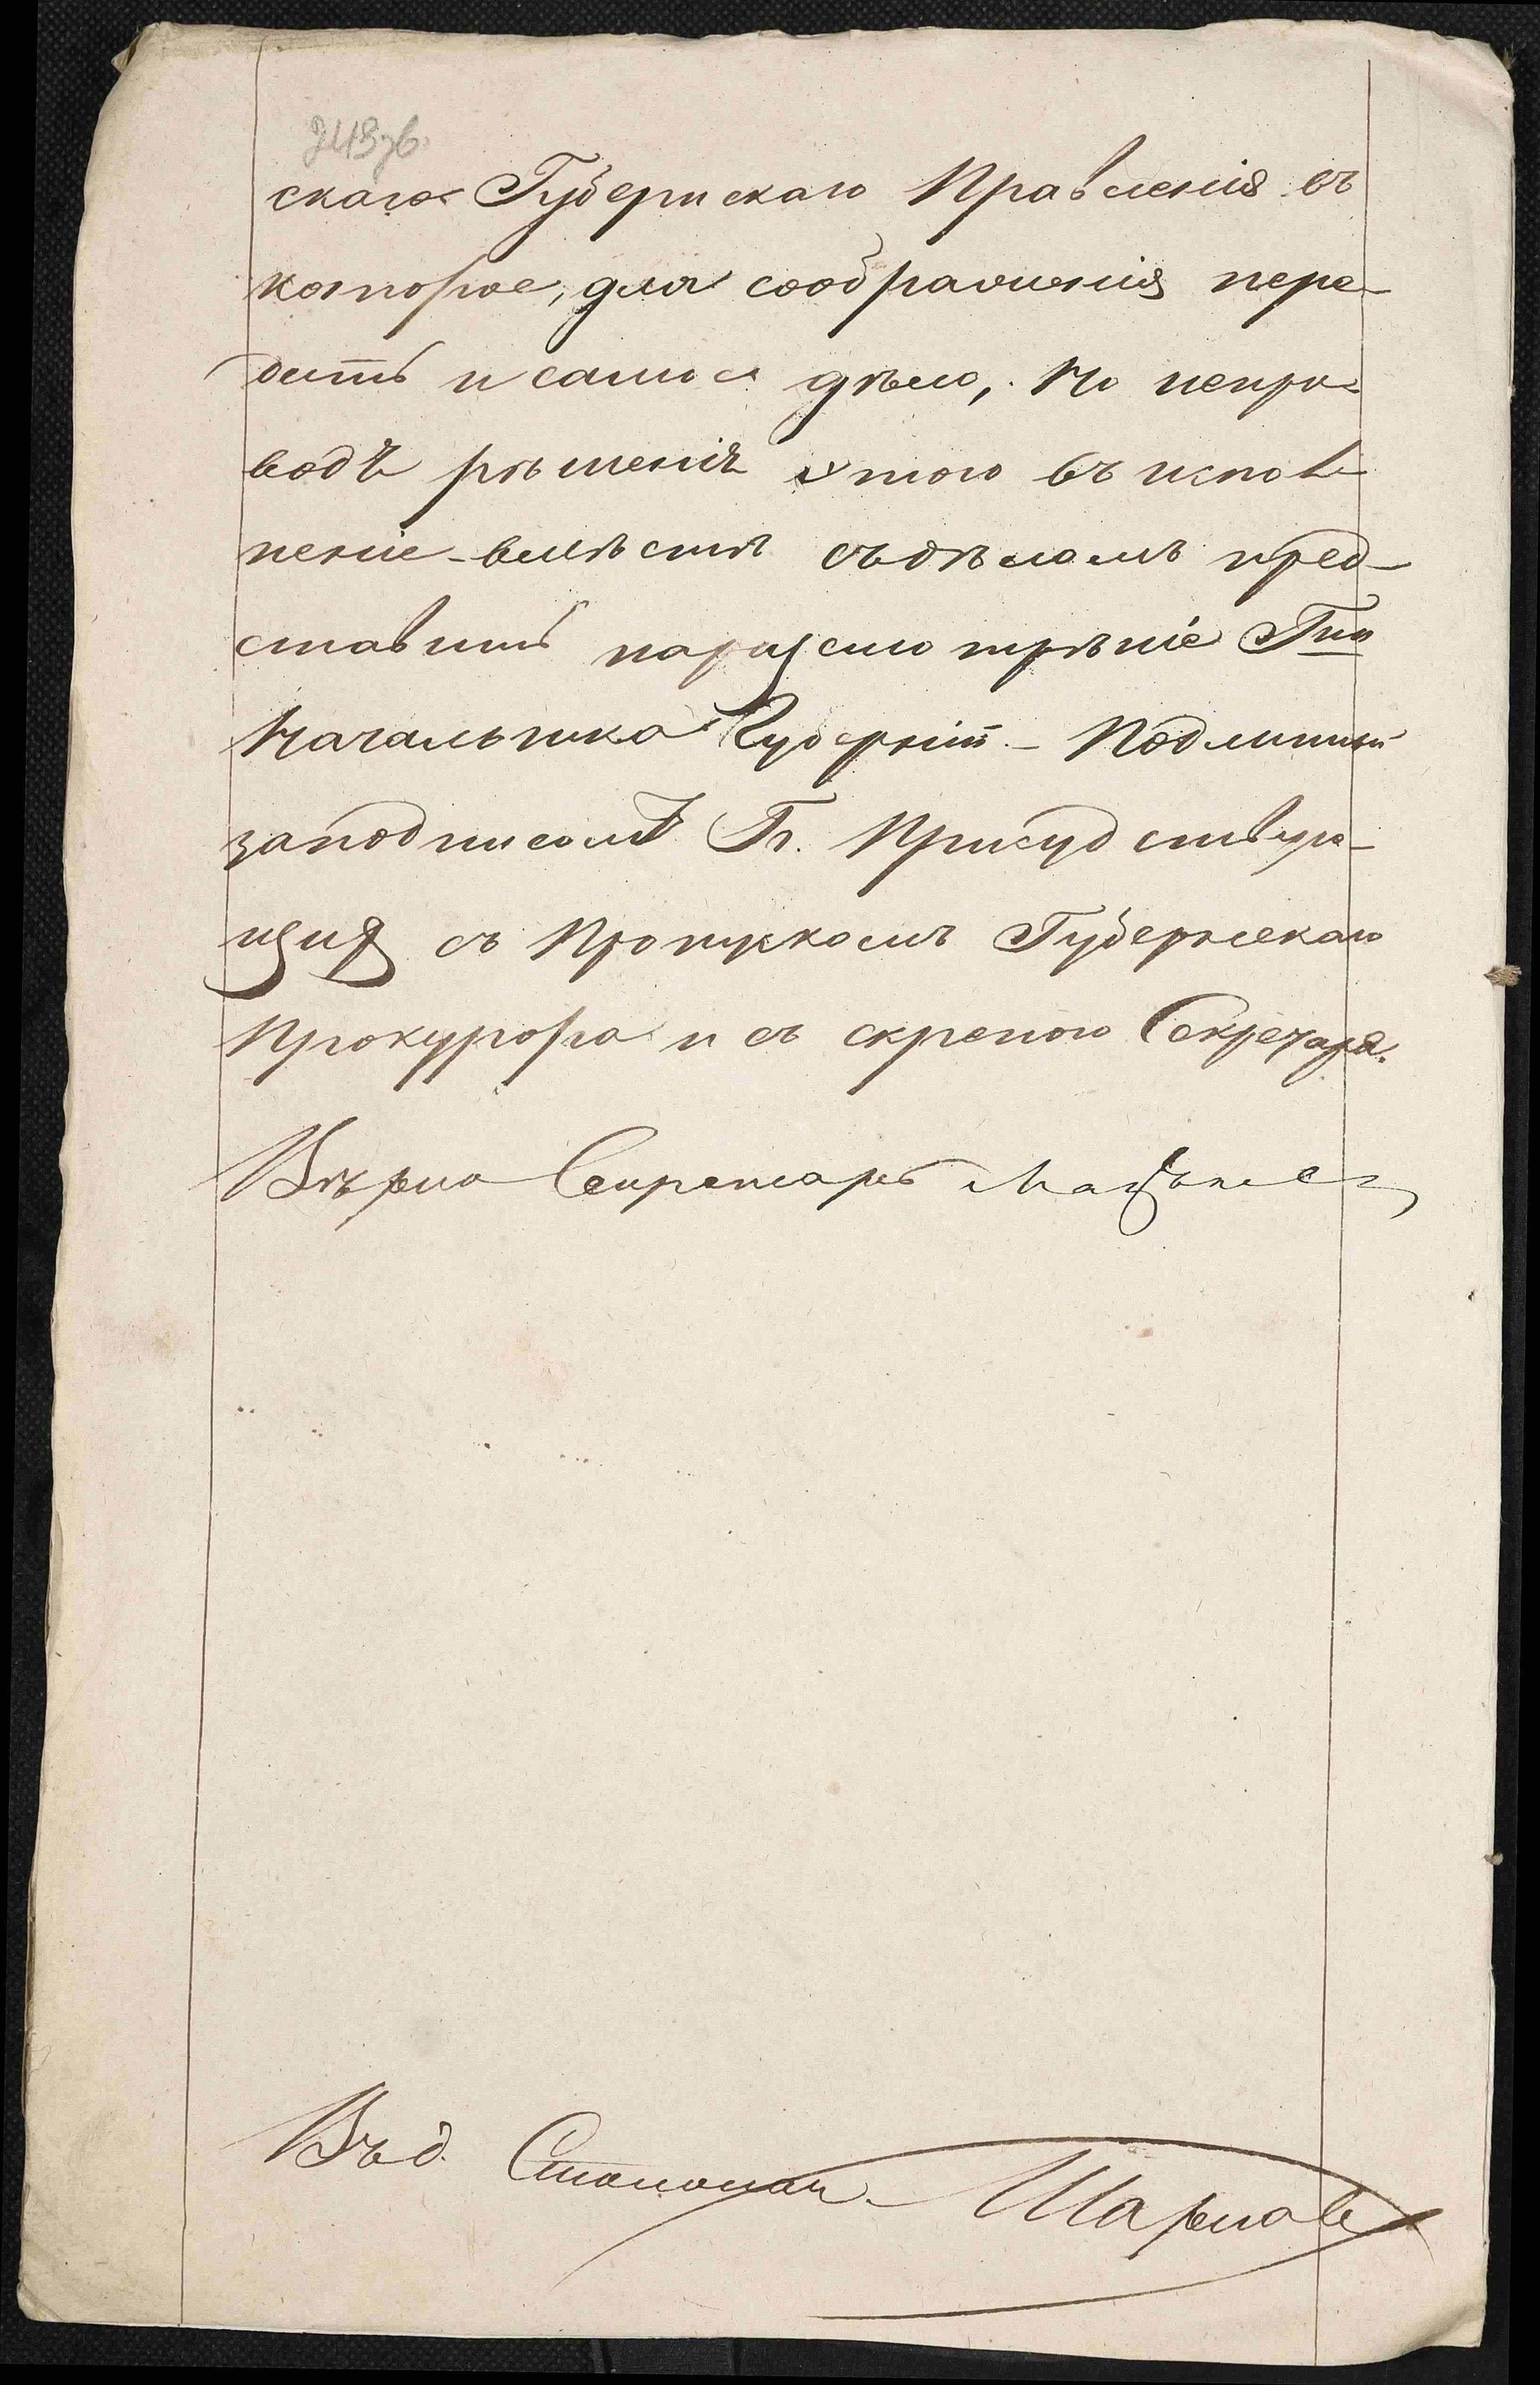 скаго Губернскаго Правленія въ
которое, для соображенія пере-
дать и самое дѣло, Но непри-
водя рѣшенія этого въ испол
неніе - вмѣстѣ съ дѣломъ пред-
ставить на разсмотрѣніе Гна
Начальника Губерніи - Подлинный
заподписомъ Гг. Присудствую-
щих съ Пропускомъ Губернскаго
Прокурора и съ скрепою Секретаря.
Вѣрно Секретарь
Шарлов